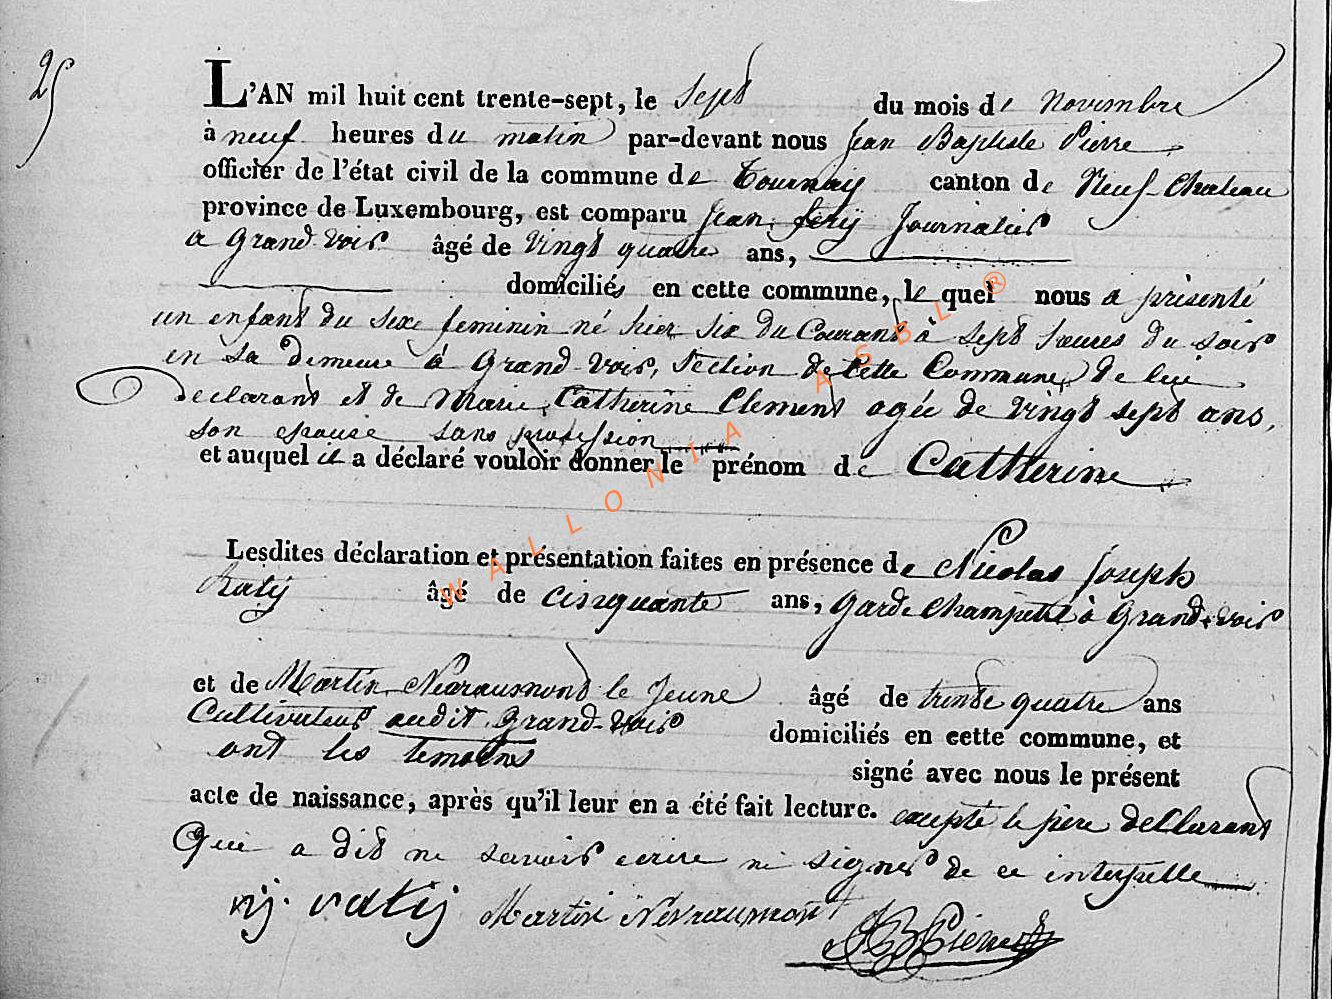 25
L'AN mil huit cent trente-sept, le Sept du mois de Novembre
à neuf heures du matin par-devant nous Jean Baptiste Pierre
officier de l'état civil de la commune de Tournay canton de Neuf-Chateau
province de Luxembourg, est comparu Jean fery Journalier
a Grand-voir âgé de Vingt quatre ans,
domiciliés en cette commune, le quel nous a présenté
un enfant du sexe feminin né hier six du Courant à sept heures du soir
en sa demeure à Grand-voir, Section de Cette Commune, de lui
declarant et de Marie Catherine Clement agée de vingt sept ans,
son epouse sans profession
et auquel il a déclaré vouloir donner le prénom de Catherine
Lesdites déclaration et présentation faites en présence de Nicolas Joseph
Raty âgé de cinquante ans, garde champetre à Grand-voir
et de Martin Nevraumont le Jeune âgé de trente quatre ans
Cultivateur audit Grand-voir domiciliés en cette commune, et
ont les temoins signé avec nous le présent
acte de naissance, après qu'il leur en a été fait lecture. excepté le père declarant
Qui a dit ne savoir ecrire ni signer de ce interpelle
nj. raty Martin Nevraumont JB Pierre
WALLONIA ASBL ®